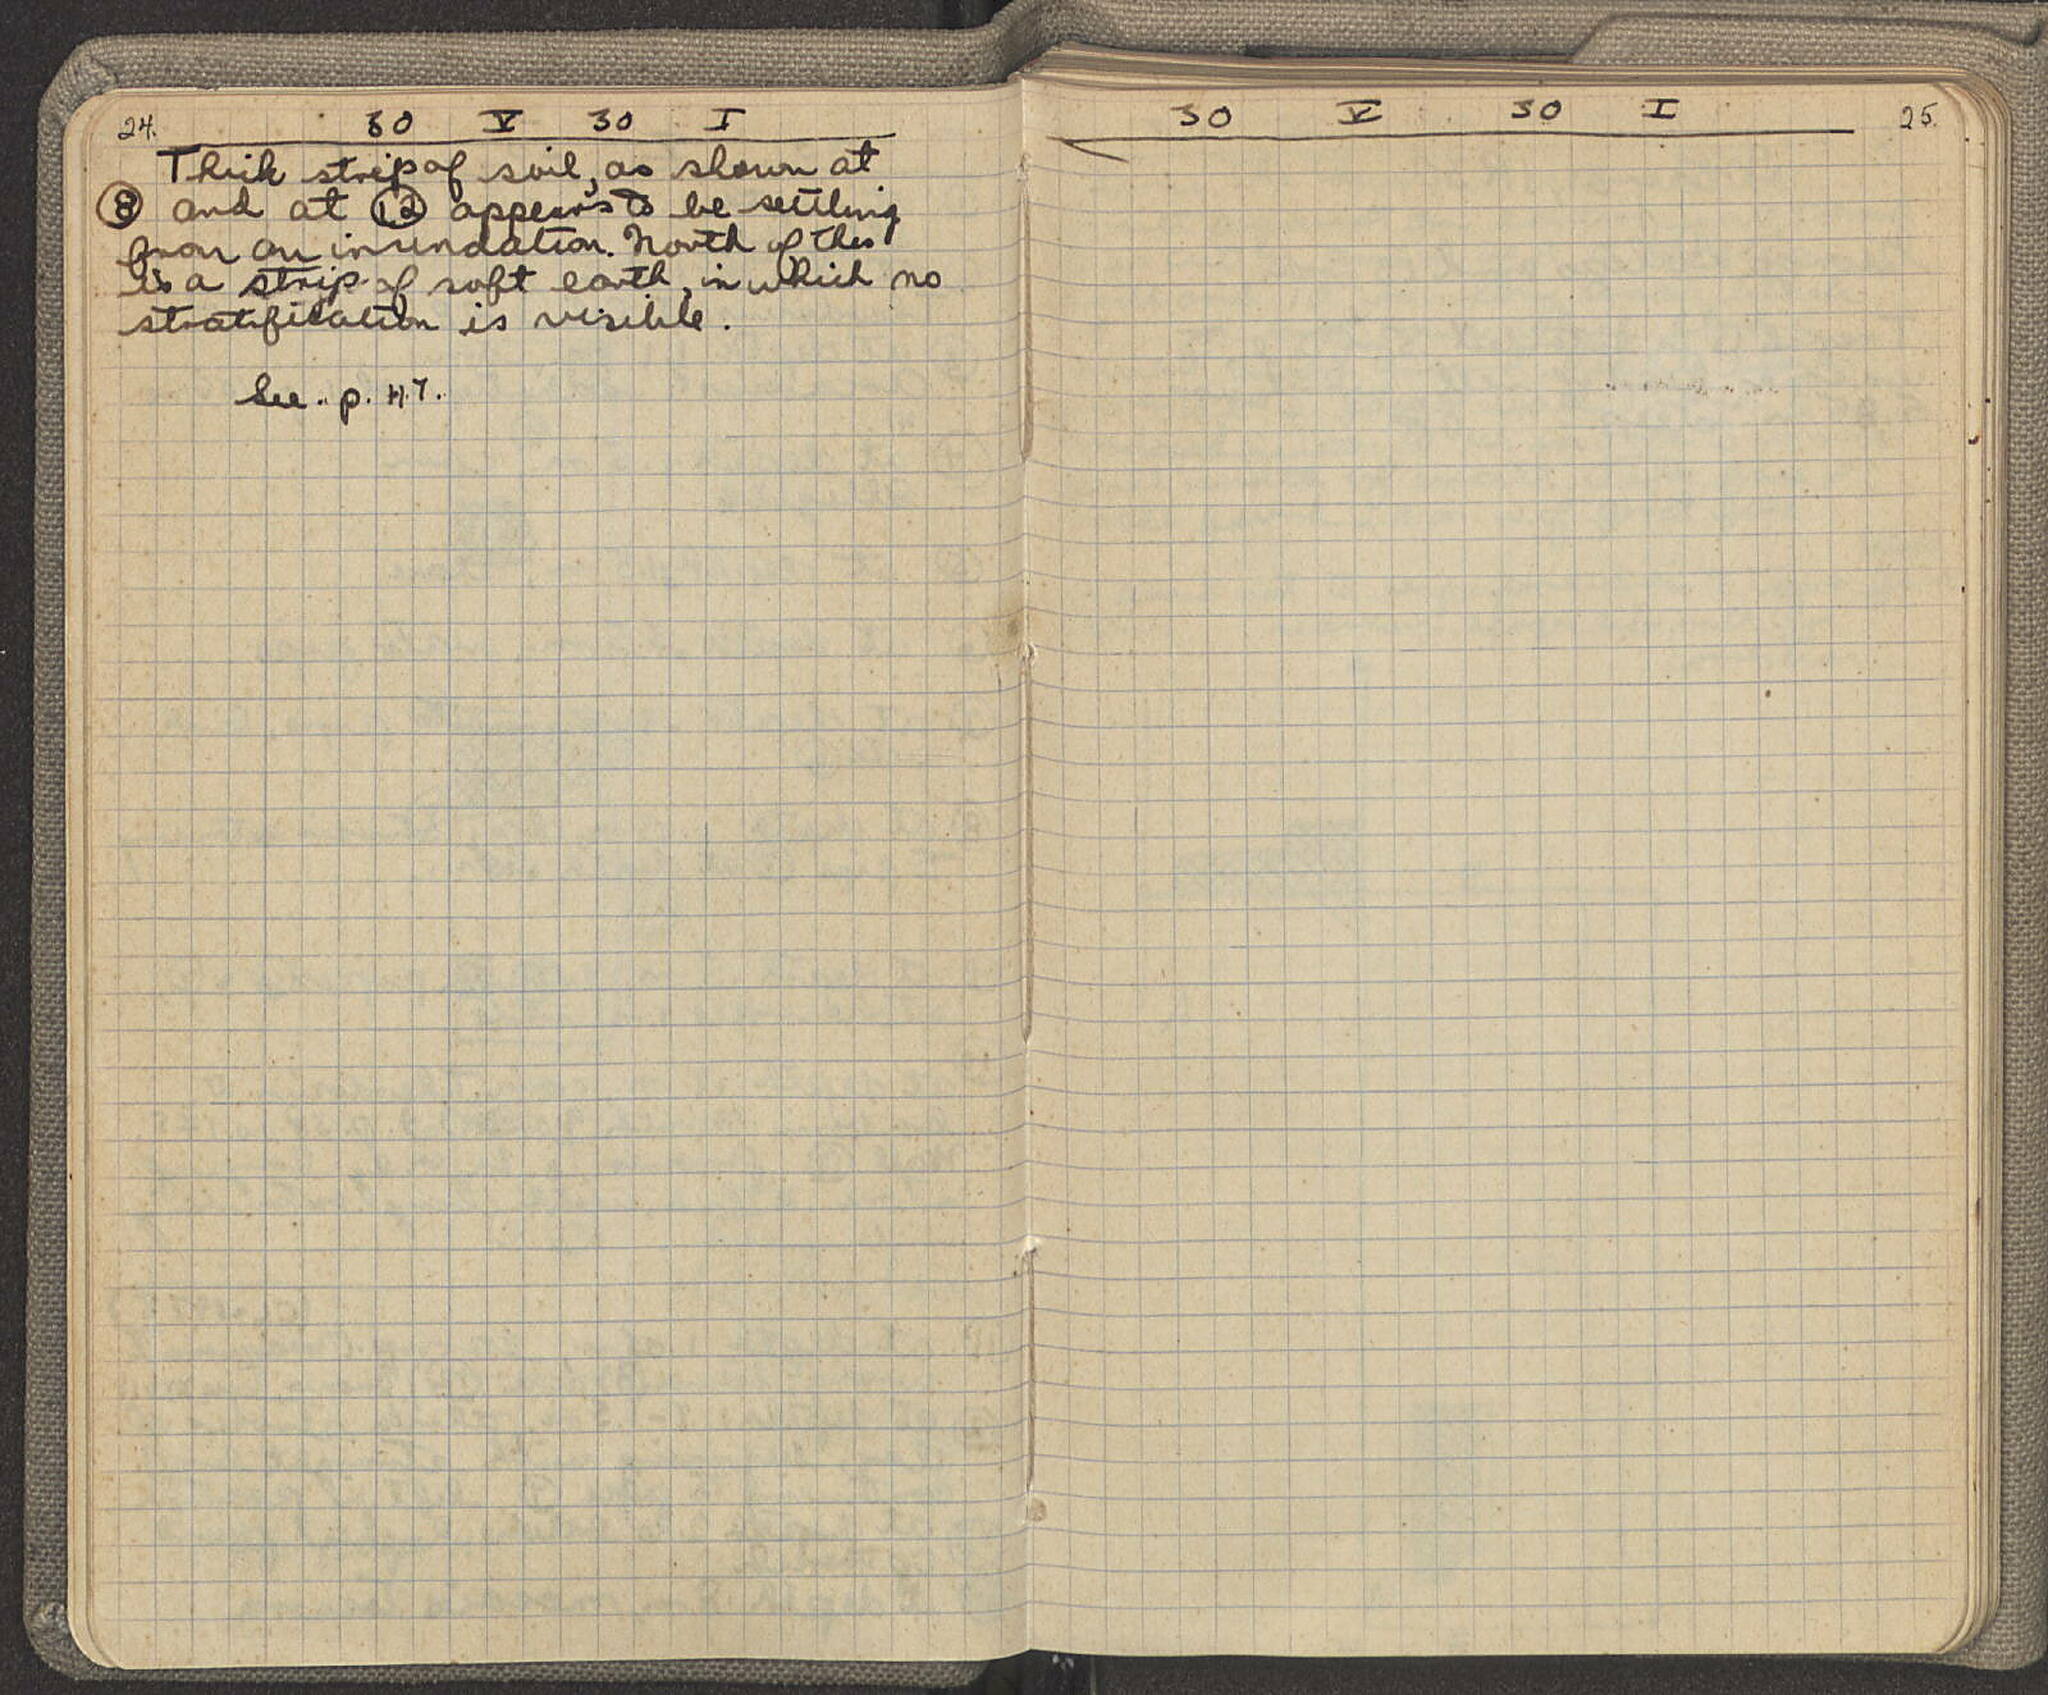 24. 30 V 30 I
Thick strip of soil, as shown at
⑧ and at ⑫ appears to be settling
from an inundation. North of this
is a strip of soft earth, in which no
stratification is visible.
See p. 47.
30 V 30 I 25.